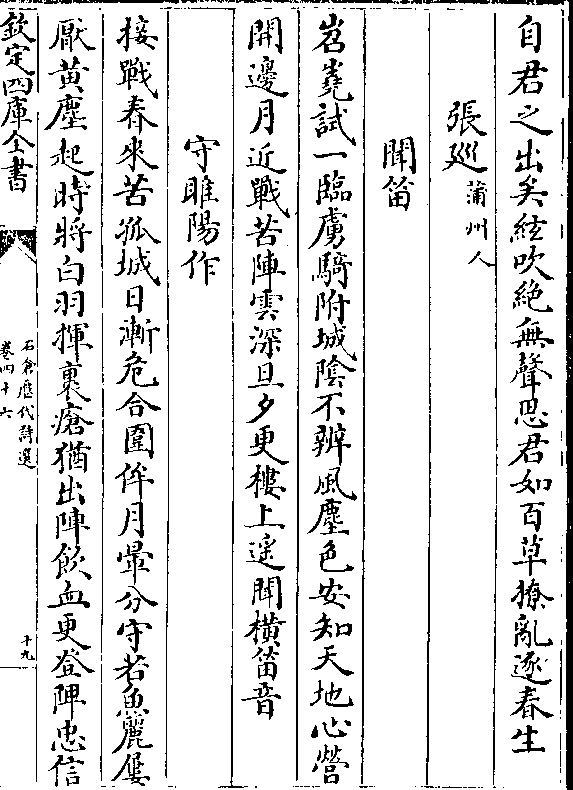 自君之出矣絃吹絶無聲思君如百草撩亂逐春生
張廵蒲州人
聞笛
岧嶤試一臨虜騎附城陰不辨風塵色安知天地心營
開邊月近戰苦陣雲深旦夕更樓上遥聞横笛音
守睢陽作
接戰春來苦孤城日漸危合圍侔月暈分守若魚麗屢
厭黄塵起時將白羽揮裹瘡猶出陣飲血更登陴忠信
欽定四庫全書
石倉歴代詩選
卷四十六
十九